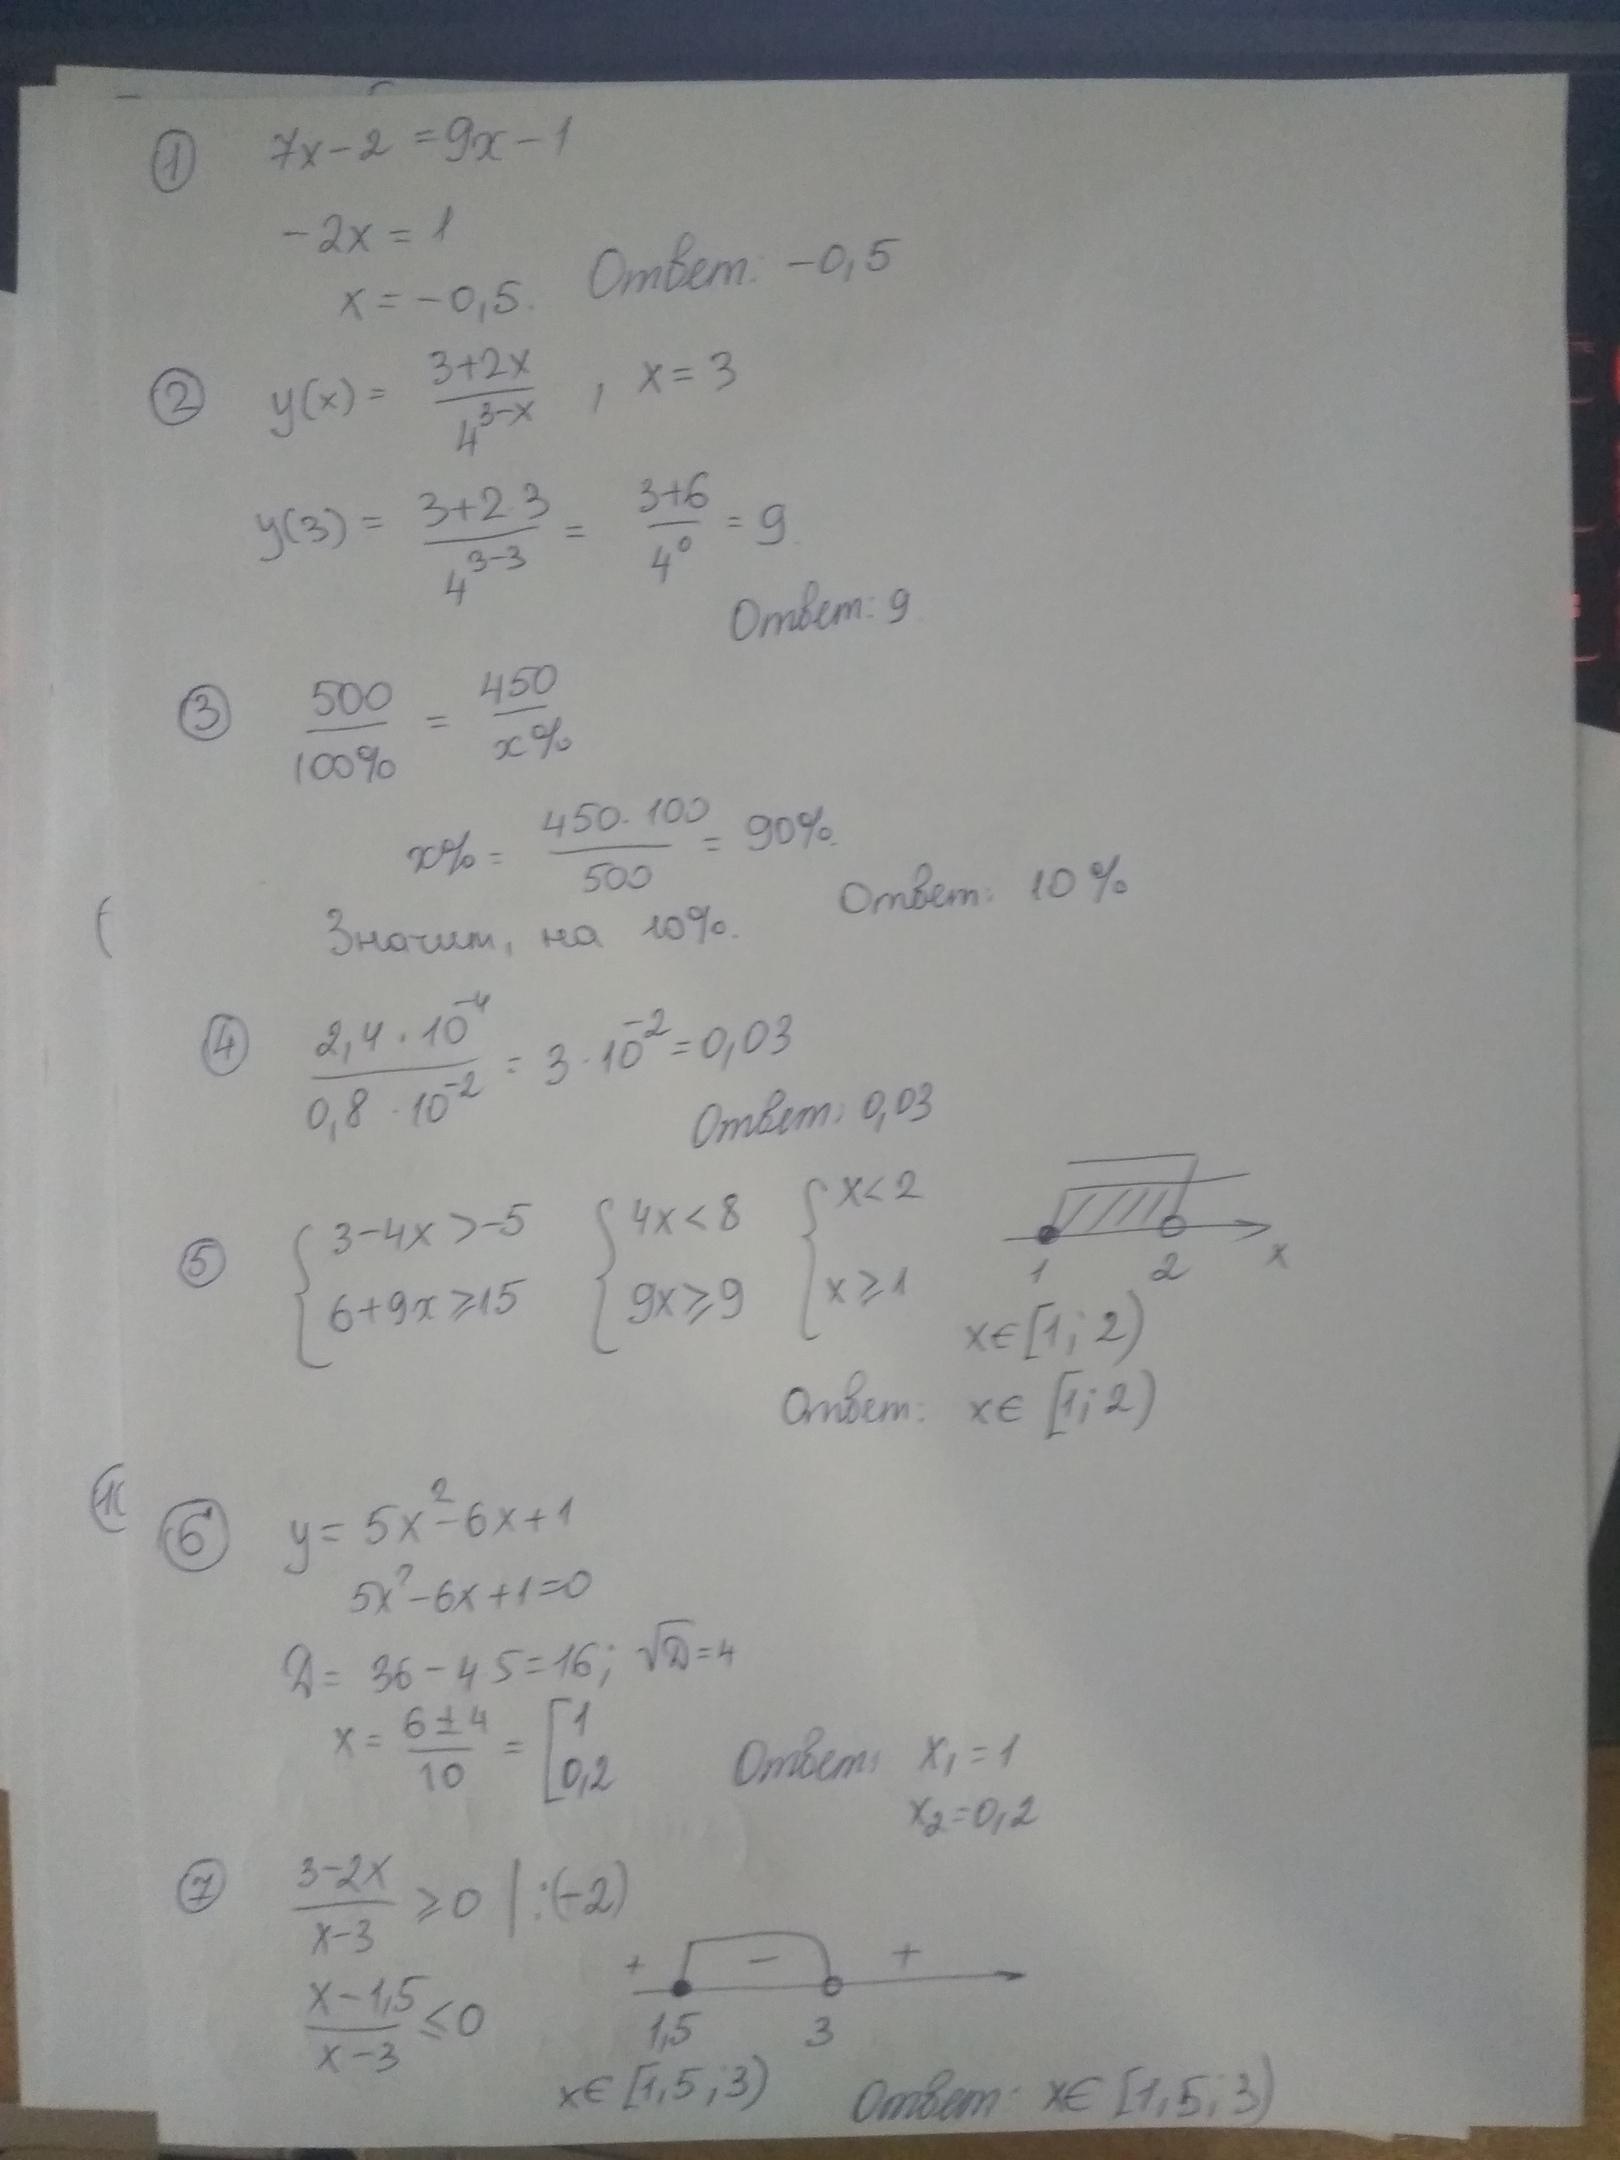 ① 7x-2=9x-1
-2x=1
x=-0,5. Ответ: -0,5
② y(x)= (3+2x)/(4^(3-x)), x=3
y(3)= (3+2·3)/(4^(3-3)) = (3+6)/(4^0) = 9.
Ответ: 9
③ 500/100% = 450/x%
x%= (450·100)/500 = 90%.
Значит, на 10%. Ответ: 10%
④ (2,4·10^-4)/(0,8·10^-2) = 3·10^-2=0,03
Ответ: 0,03
⑤ { 3-4x>-5 { 4x<8 { x<2
6+9x≥15 9x≥9 x≥1
1 2 x
x∈[1;2)
Ответ: x∈[1;2)
⑥ y=5x²-6x+1
5x²-6x+1=0
D=36-4·5=16; √D=4
x= (6±4)/10 = [ 1
0,2
Ответ: x₁=1
x₂=0,2
⑦ (3-2x)/(x-3) ≥0 |:(-2)
(x-1,5)/(x-3) ≤0
+ - +
1,5 3
x∈[1,5;3) Ответ: x∈[1,5;3)